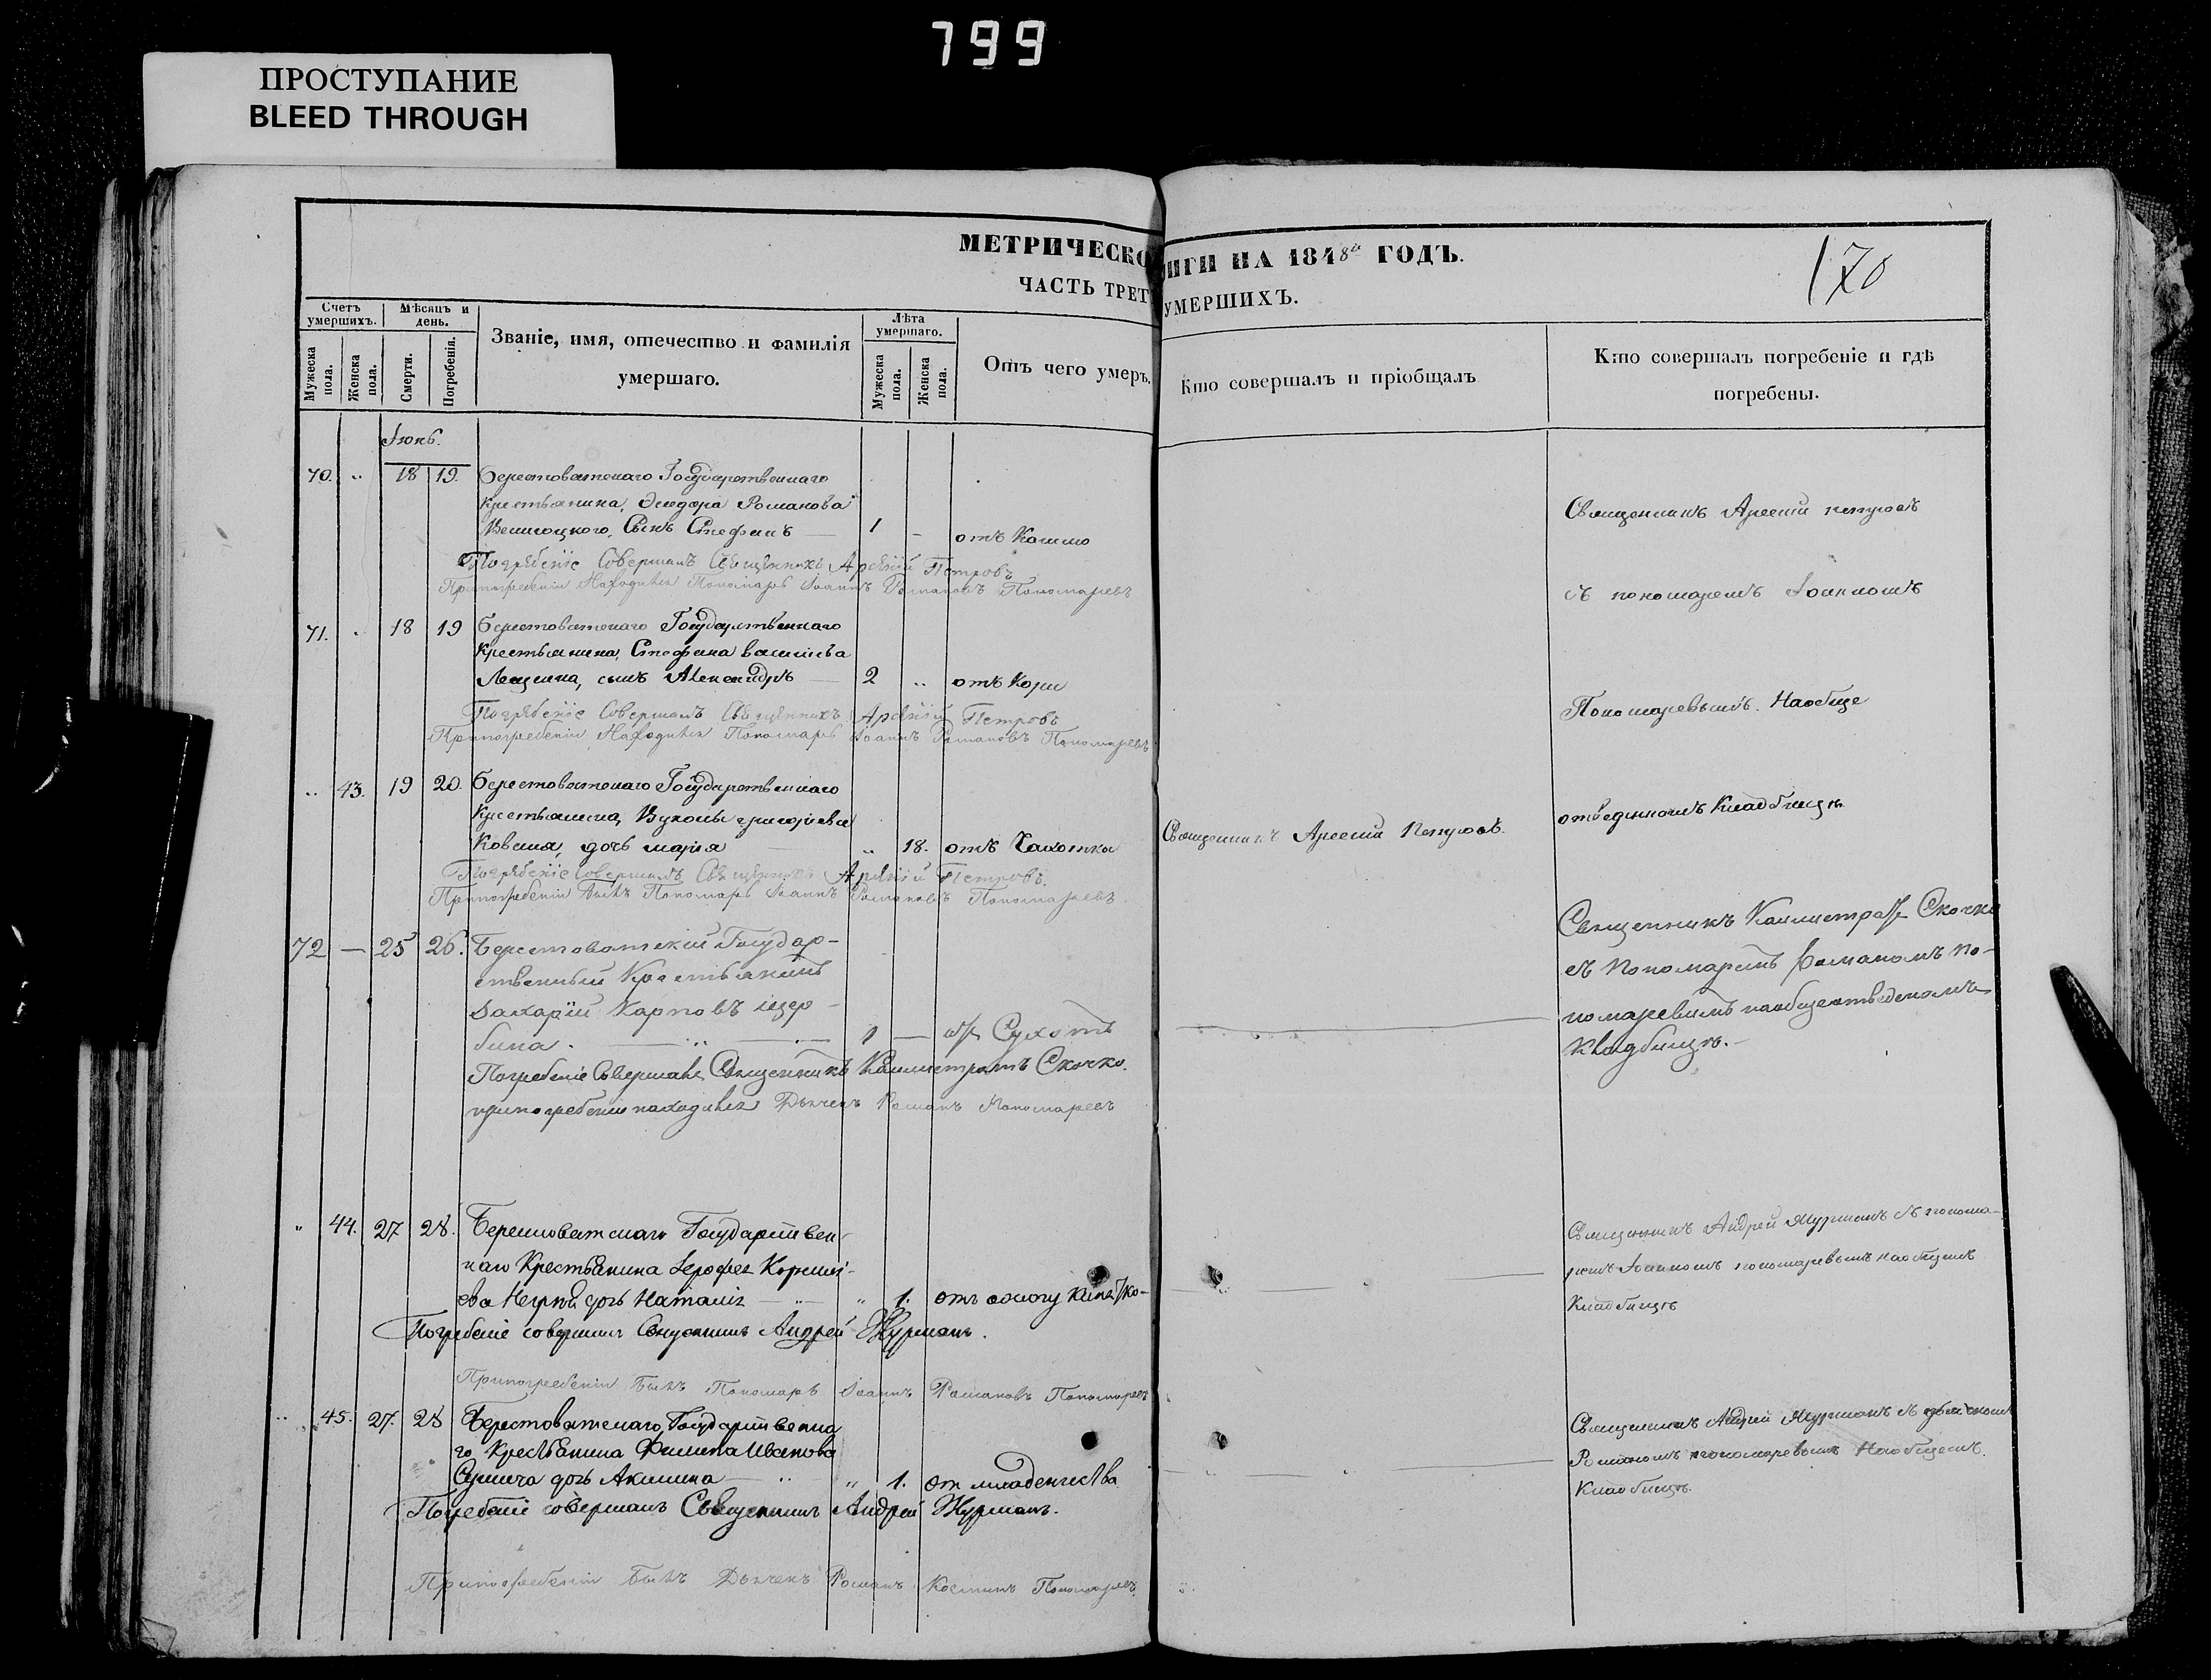 799
ПРОСТУПАНИЕ
BLEED THROUGH
МЕТРИЧЕСКО ИГИ НА 1848й ГОДЪ.
170
ЧАСТЬ ТРЕТ УМЕРШИХЪ.
Счетъ умершихъ.
Мѣсяцъ и день.
Званіе, имя, отечество и фамилія умершаго.
Лѣта умершаго.
Отъ чего умеръ.
Кто совершалъ и пріобщалъ
Кто совершалъ погребеніе и гдѣ погребены.
Мужеска пола.
Женска пола.
Смерти.
Погребенія.
Мужеска пола.
Женска пола.
Іюнь.
70. „ 18 19. Берестоватскаго Государственнаго
крестьянина, Ѳеодора Романова
сынъ Стефанъ — 1 -
Погрѣбеніе Совершалъ Священникъ Арсеній Петровъ
Припогребеніи Находился Пономарь Іоаннъ Романовъ Пономаревъ
Священникъ Арсеній Петровъ
съ пономаремъ Іоанномъ
Пономаревымъ. Наобще
отведенномъ Кладбищѣ
71. „ 18 19 Берестоватскаго Государственнаго
Крестьянина, Стефана
сынъ Александръ — 2 „ отъ Кори
Погрѣбеніе Совершалъ Священникъ Арсеній Петровъ
Припогребеніи Находился Пономарь Іоаннъ Романовъ Пономаревъ
„ 43. 19 20. Берестоватскаго Государственнаго
Крестьянина, Вуколы Григорьева
дочь Марія „ 18. отъ Чахотки
Священникъ Арсеній Петровъ.
Погрѣбеніе Совершалъ Священникъ Арсеній Петровъ.
Припогребеніи Былъ Пономарь Іоаннъ Романовъ Пономаревъ.
72 — 25 26. Берестоватскій Государ-
ственный Крестьянинъ
Захарій Карповъ Щер-
бина. 1 — отъ Сухотъ
Погребеніе Совершалъ Священникъ Каллистратъ Скочко.
припогребеніи находился Дьячекъ Романъ Пономаревъ
Священникъ Каллистратъ Скочко
съ Пономаремъ Романомъ По-
номаревымъ
Кладбищѣ.
„ 44. 27 28. Берестоватскаго Государствен-
наго Крестьянина Іерофея
дочь Наталія „ 1. отъ
Погребеніе совершалъ Священникъ Андрей Журманъ.
Припогребеніи Былъ Пономарь Іоаннъ Романовъ Пономаревъ
Священникъ Андрей Журманъ съ понома-
ремъ Іоанномъ пономаревымъ наобщемъ
Кладбищѣ
„ 45. 27. 28 Берестоватскаго Государственна
го Крестьянина Филипа Иванова
дочь Акилина „ 1. от младенчества
Погребеніе совершалъ Священникъ Андрей Журманъ.
Припогребеніи Былъ Дьячекъ Романъ Пономаревъ.
Священникъ Андрей Журманъ съ дьячкомъ
Романомъ пономаревымъ Наобщемъ.
Кладбищѣ.